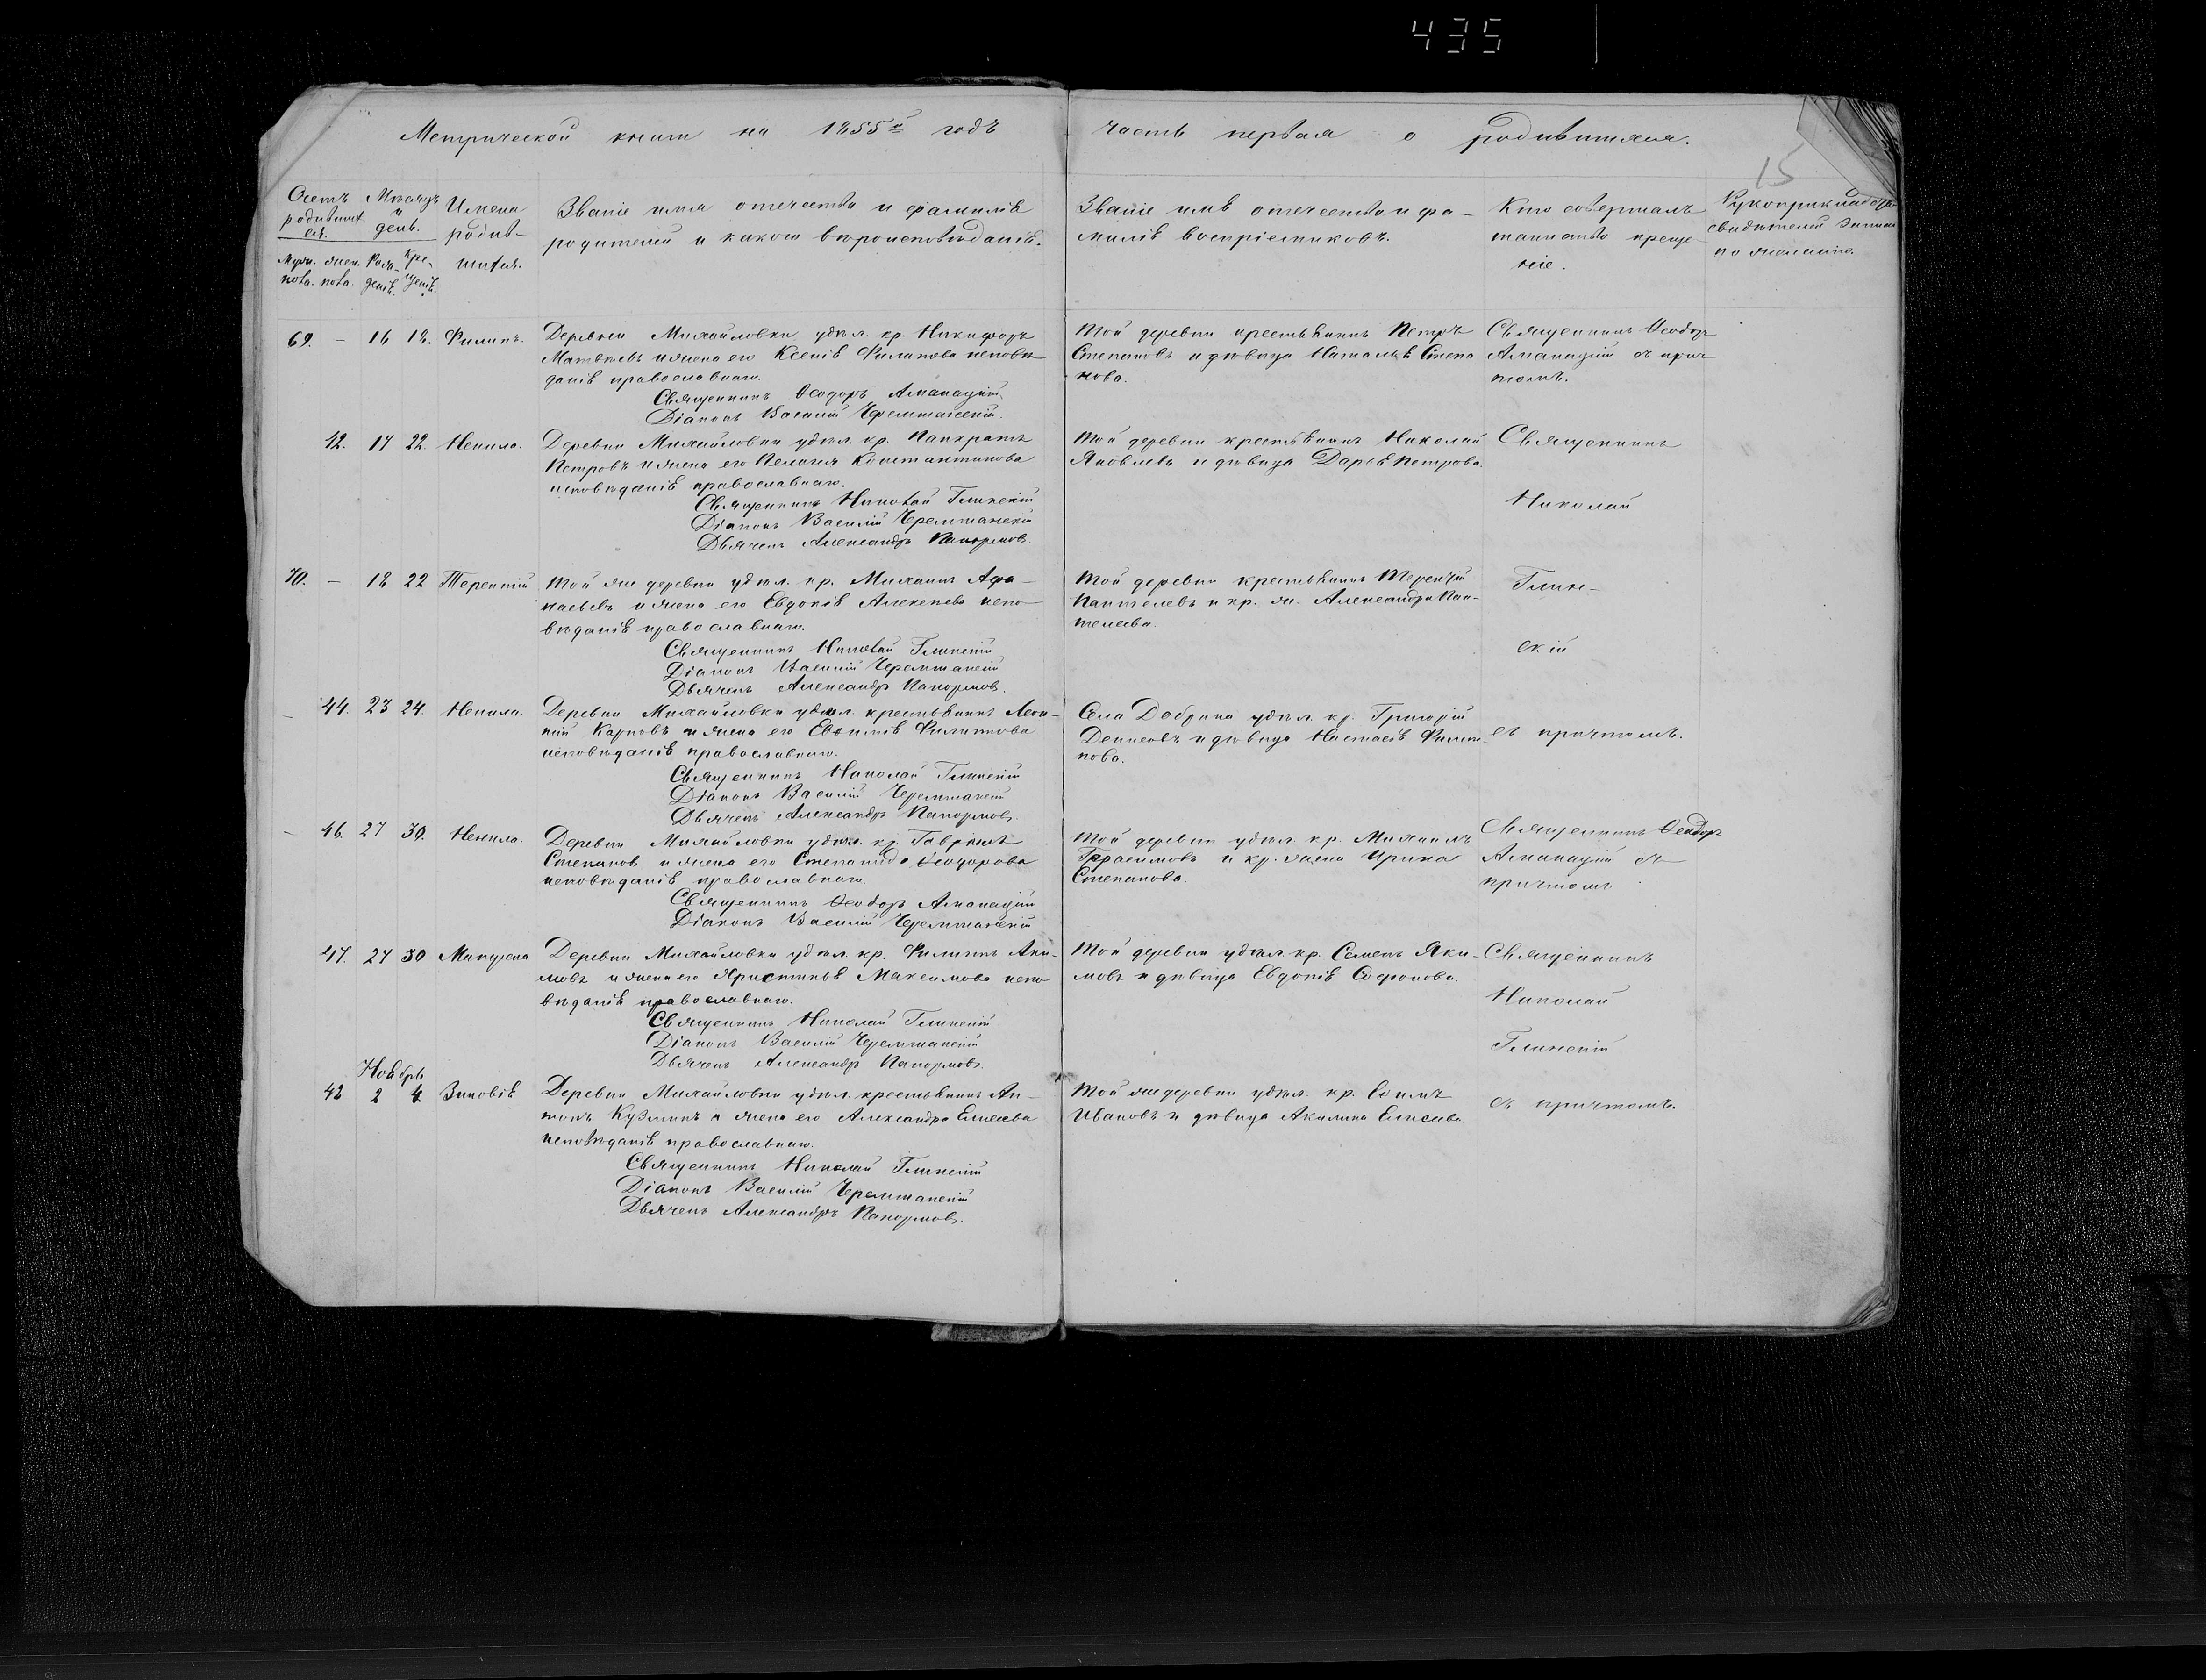 435
Метрической книги на 1855й годъ
часть первая о родившихся.
15
Счетъ родившихся.
Мѣсяцъ и день.
Имена родившихся.
Званіе имя отечество и фамилія
родителей и какого вѣроисповѣданія.
Званіе имя отечество и фа-
милія воспріемниковъ.
Кто совершалъ
таинство креще-
ніе.
Рукоприкладство
свидѣтелей записи
по желанію.
Муж. пола. жен. пола. Рож-деніе. Кре-щеніе.
69. — 16 18. Филипъ.
Деревни Михайловки удѣл. кр. Никифоръ
Матвѣевъ и жена его Ксенія Филипова исповѣ
данія православнаго.
Священникъ Ѳеодоръ Аманацкій
Діаконъ Василій Черемшанскій.
Той деревни крестьянинъ Петръ
Степановъ и дѣвица Наталья Степа
нова.
Священникъ Ѳеодоръ
Аманацкій съ прич-
томъ.
42. 17 22. Ненила.
Деревни Михайловки удѣл. кр. Панкратъ
Петровъ и жена его Пелагия Константинова
исповѣданія православнаго.
Священникъ Николай Глинскій
Діаконъ Василій Черемшанскій
Дьячекъ Александръ Панормовъ.
Той деревни крестьянинъ Николай
Яковлевъ и дѣвица Дарья Петрова.
Священникъ
Николай
70. — 18 22 Терентій
Той же деревни удѣл. кр. Михаилъ Афа-
насьевъ и жена его Евдокія Алексѣева испо-
вѣданія православнаго.
Священникъ Николай Глинскій
Діаконъ Василій Черемшанскій
Дьячекъ Александръ Панормовъ.
Той деревни крестьянинъ Терентій
Пантелевъ и кр. ж. Александра Пан-
телеева.
Глин-
скій
44. 23 24. Ненила.
Деревни Михайловки удѣл. крестьянинъ Леон-
тій Карповъ и жена его Евѳимія Филиппова
исповѣданія православнаго.
Священникъ Николай Глинскій
Діаконъ Василій Черемшанскій
Дьячекъ Александръ Панормовъ.
Села Добрина удѣл. кр. Григорій
Денисовъ и дѣвица Настасія Филип-
пова.
съ причтомъ.
46. 27 30. Ненила.
Деревни Михайловки удѣл. кр. Гаврiилъ
Степановъ и жена его Степанида Ѳеодорова
исповѣданія православнаго.
Священникъ Ѳеодоръ Аманацкій
Діаконъ Василій Черемшанскій
Той деревни удѣл. кр. Михаилъ
Герасимовъ и кр. жена Ирина
Степанова.
Священникъ Ѳеодоръ
Аманацкій съ
причтомъ
47. 27 30
Деревни Михайловки удѣл. кр. Филипъ Аки-
мовъ и жена его Христинья Максимова испо-
вѣданія православнаго.
Священникъ Николай Глинскій
Діаконъ Василій Черемшанскій
Дьячекъ Александръ Панормовъ.
Той деревни удѣл. кр. Семенъ Яки-
мовъ и дѣвица Евдокія Софонова.
Священникъ
Николай
Глинскій
Ноябрь
48 2 4. Зиновія
Деревни Михайловки удѣл. крестьянинъ Ан-
тонъ Кузминъ и жена его Александра Елисеева
исповѣданія православнаго.
Священникъ Николай Глинскій
Діаконъ Василій Черемшанскій
Дьячекъ Александръ Панормовъ.
Той же деревни удѣл. кр. Ефимъ
Ивановъ и дѣвица Акилина Елисеева
съ причтомъ.